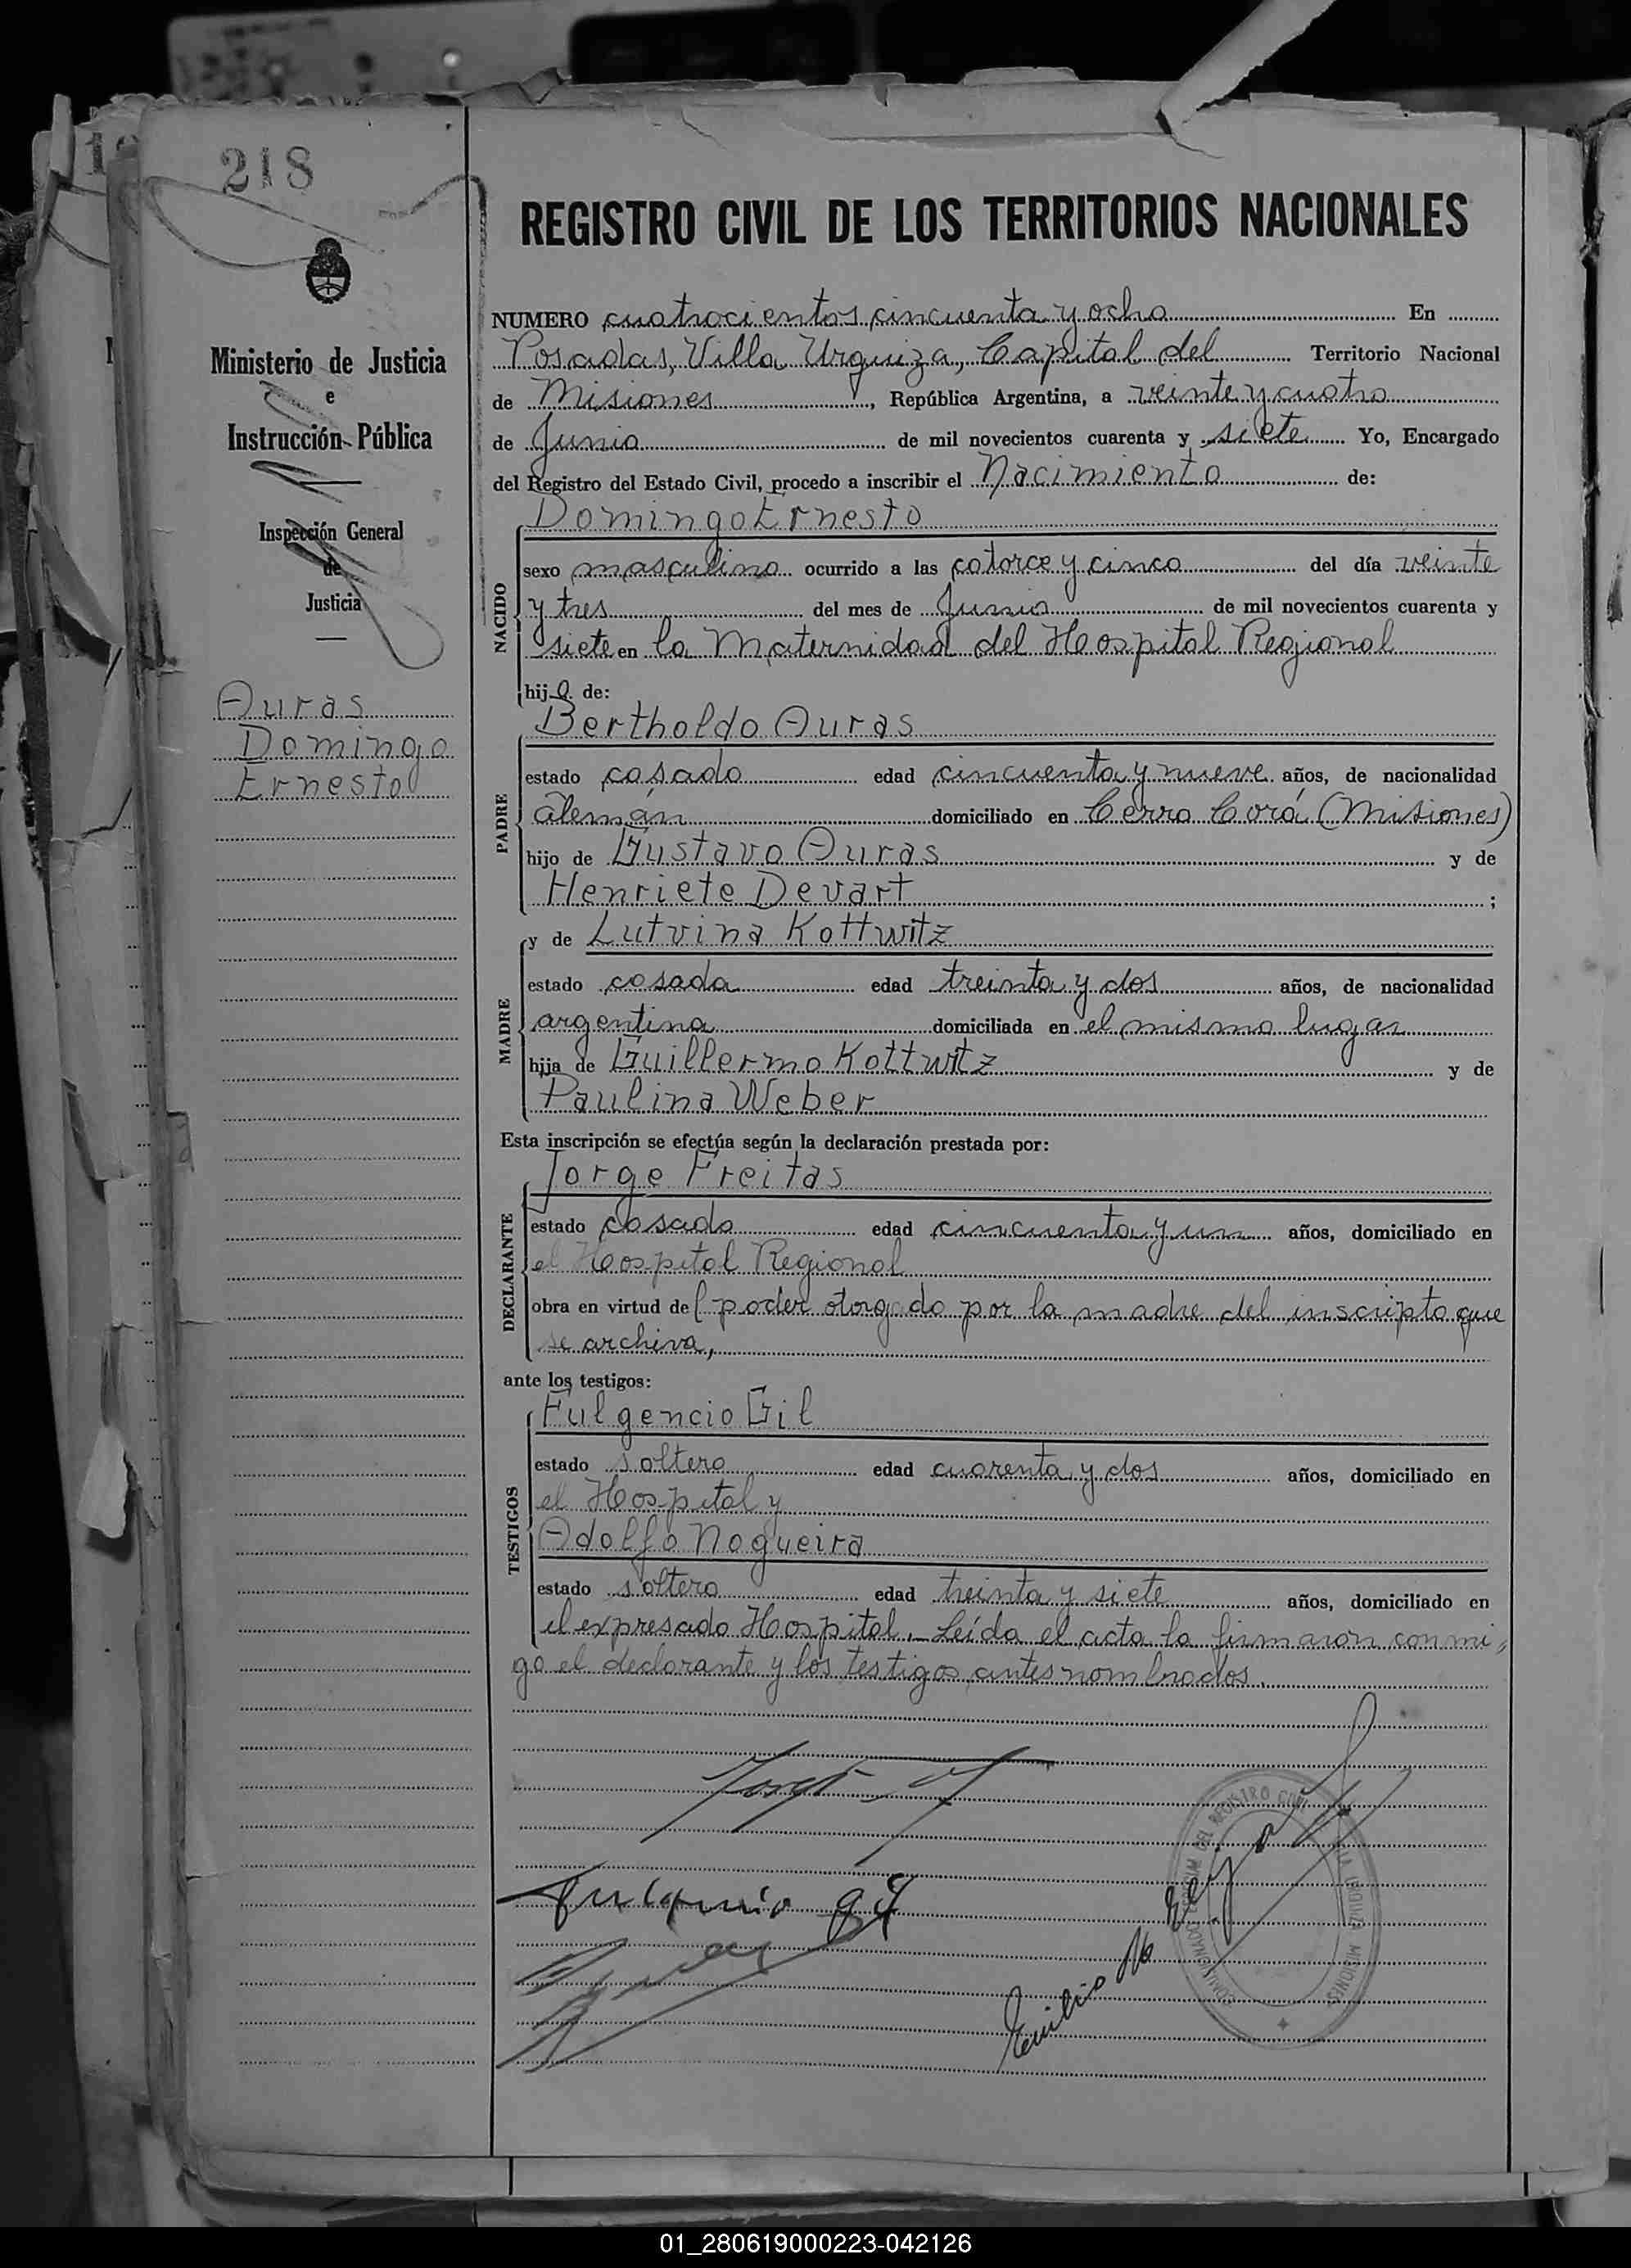 218
Ministerio de Justicia
e
Instrucción Pública
Inspección General
de
Justicia
Auras
Domingo
Ernesto
REGISTRO CIVIL DE LOS TERRITORIOS NACIONALES
NUMERO cuatrocientos cincuenta y ocho En
Posadas, Villa Urquiza, Capital del Territorio Nacional
de Misiones, República Argentina, a veinte y cuatro
de Junio de mil novecientos cuarenta y siete Yo, Encargado
del Registro del Estado Civil, procedo a inscribir el Nacimiento de:
Domingo Ernesto
NACIDO
sexo masculino ocurrido a las catorce y cinco del día veinte
y tres del mes de Junio de mil novecientos cuarenta y
siete en la Maternidad del Hospital Regional
hijo de:
Bertholdo Auras
PADRE
estado casado edad cincuenta y nueve años, de nacionalidad
alemán domiciliado en Cerro Corá (Misiones)
hijo de Gustavo Auras y de
Henriete Devart ;
y de Lutvina Kottwitz
MADRE
estado casada edad treinta y dos años, de nacionalidad
argentina domiciliada en el mismo lugar
hija de Guillermo Kottwitz y de
Paulina Weber
Esta inscripción se efectúa según la declaración prestada por:
Jorge Freitas
DECLARANTE
estado casado edad cincuenta y un años, domiciliado en
el Hospital Regional
obra en virtud del poder otorgado por la madre del inscripto que
se archiva,
ante los testigos:
Fulgencio Gil
TESTIGOS
estado soltero edad cuarenta y dos años, domiciliado en
el Hospital y
Adolfo Nogueira
estado soltero edad treinta y siete años, domiciliado en
el expresado Hospital. Leída el acta la firmaron conmi=
go el declarante y los testigos antes nombrados.
Fulgencio Gil
Emilio
01_280619000223-042126